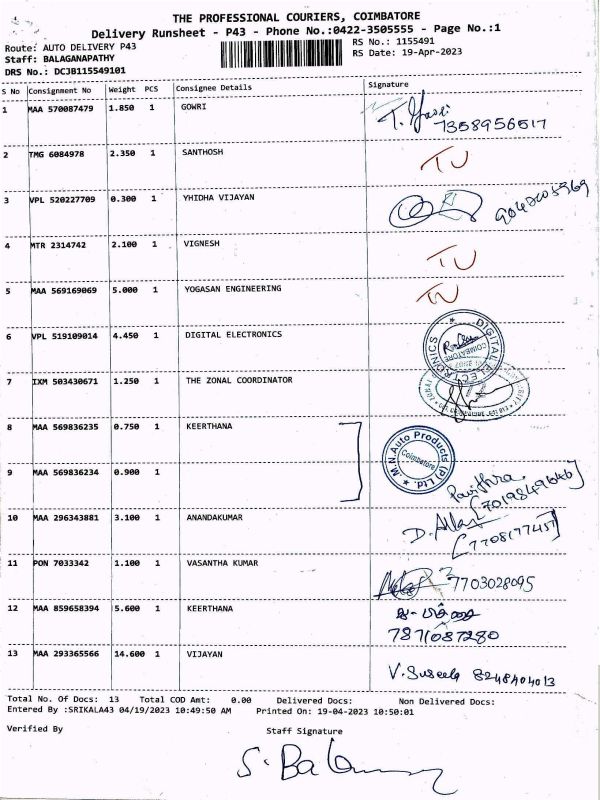 THE PROFESSIONAL COURIERS, COIMBATORE
Delivery Runsheet - P43 - Phone No.:0422-3505555 - Page No.:1
Route: AUTO DELIVERY P43 RS No.: 1155491
Staff: BALAGANAPATHY RS Date: 19-Apr-2023
DRS No.: DCJB115549101
S No Consignment No Weight PCS Consignee Details Signature
1 MAA 570087479 1.850 1 GOWRI
7358956517
2 TMG 6084978 2.350 1 SANTHOSH
3 VPL 520227709 0.300 1 YHIDHA VIJAYAN
4 MTR 2314742 2.100 1 VIGNESH
5 MAA 569169069 5.000 1 YOGASAN ENGINEERING
6 VPL 519109014 4.450 1 DIGITAL ELECTRONICS
DIGITAL ELECTRONICS
COIMBATORE
7 IXM 503430671 1.250 1 THE ZONAL COORDINATOR
8 MAA 569836235 0.750 1 KEERTHANA
M.N. Auto Products (P) Ltd.
Coimbatore
9 MAA 569836234 0.900 1
Pavithra
[7019849646]
10 MAA 296343881 3.100 1 ANANDAKUMAR
[7708177457]
11 PON 7033342 1.100 1 VASANTHA KUMAR
7703028095
12 MAA 859658394 5.600 1 KEERTHANA
7871087280
13 MAA 293365566 14.600 1 VIJAYAN
V. Suseela 8248404013
Total No. Of Docs: 13 Total COD Amt: 0.00 Delivered Docs: Non Delivered Docs:
Entered By :SRIKALA43 04/19/2023 10:49:50 AM Printed On: 19-04-2023 10:50:01
Verified By Staff Signature
S. Bala